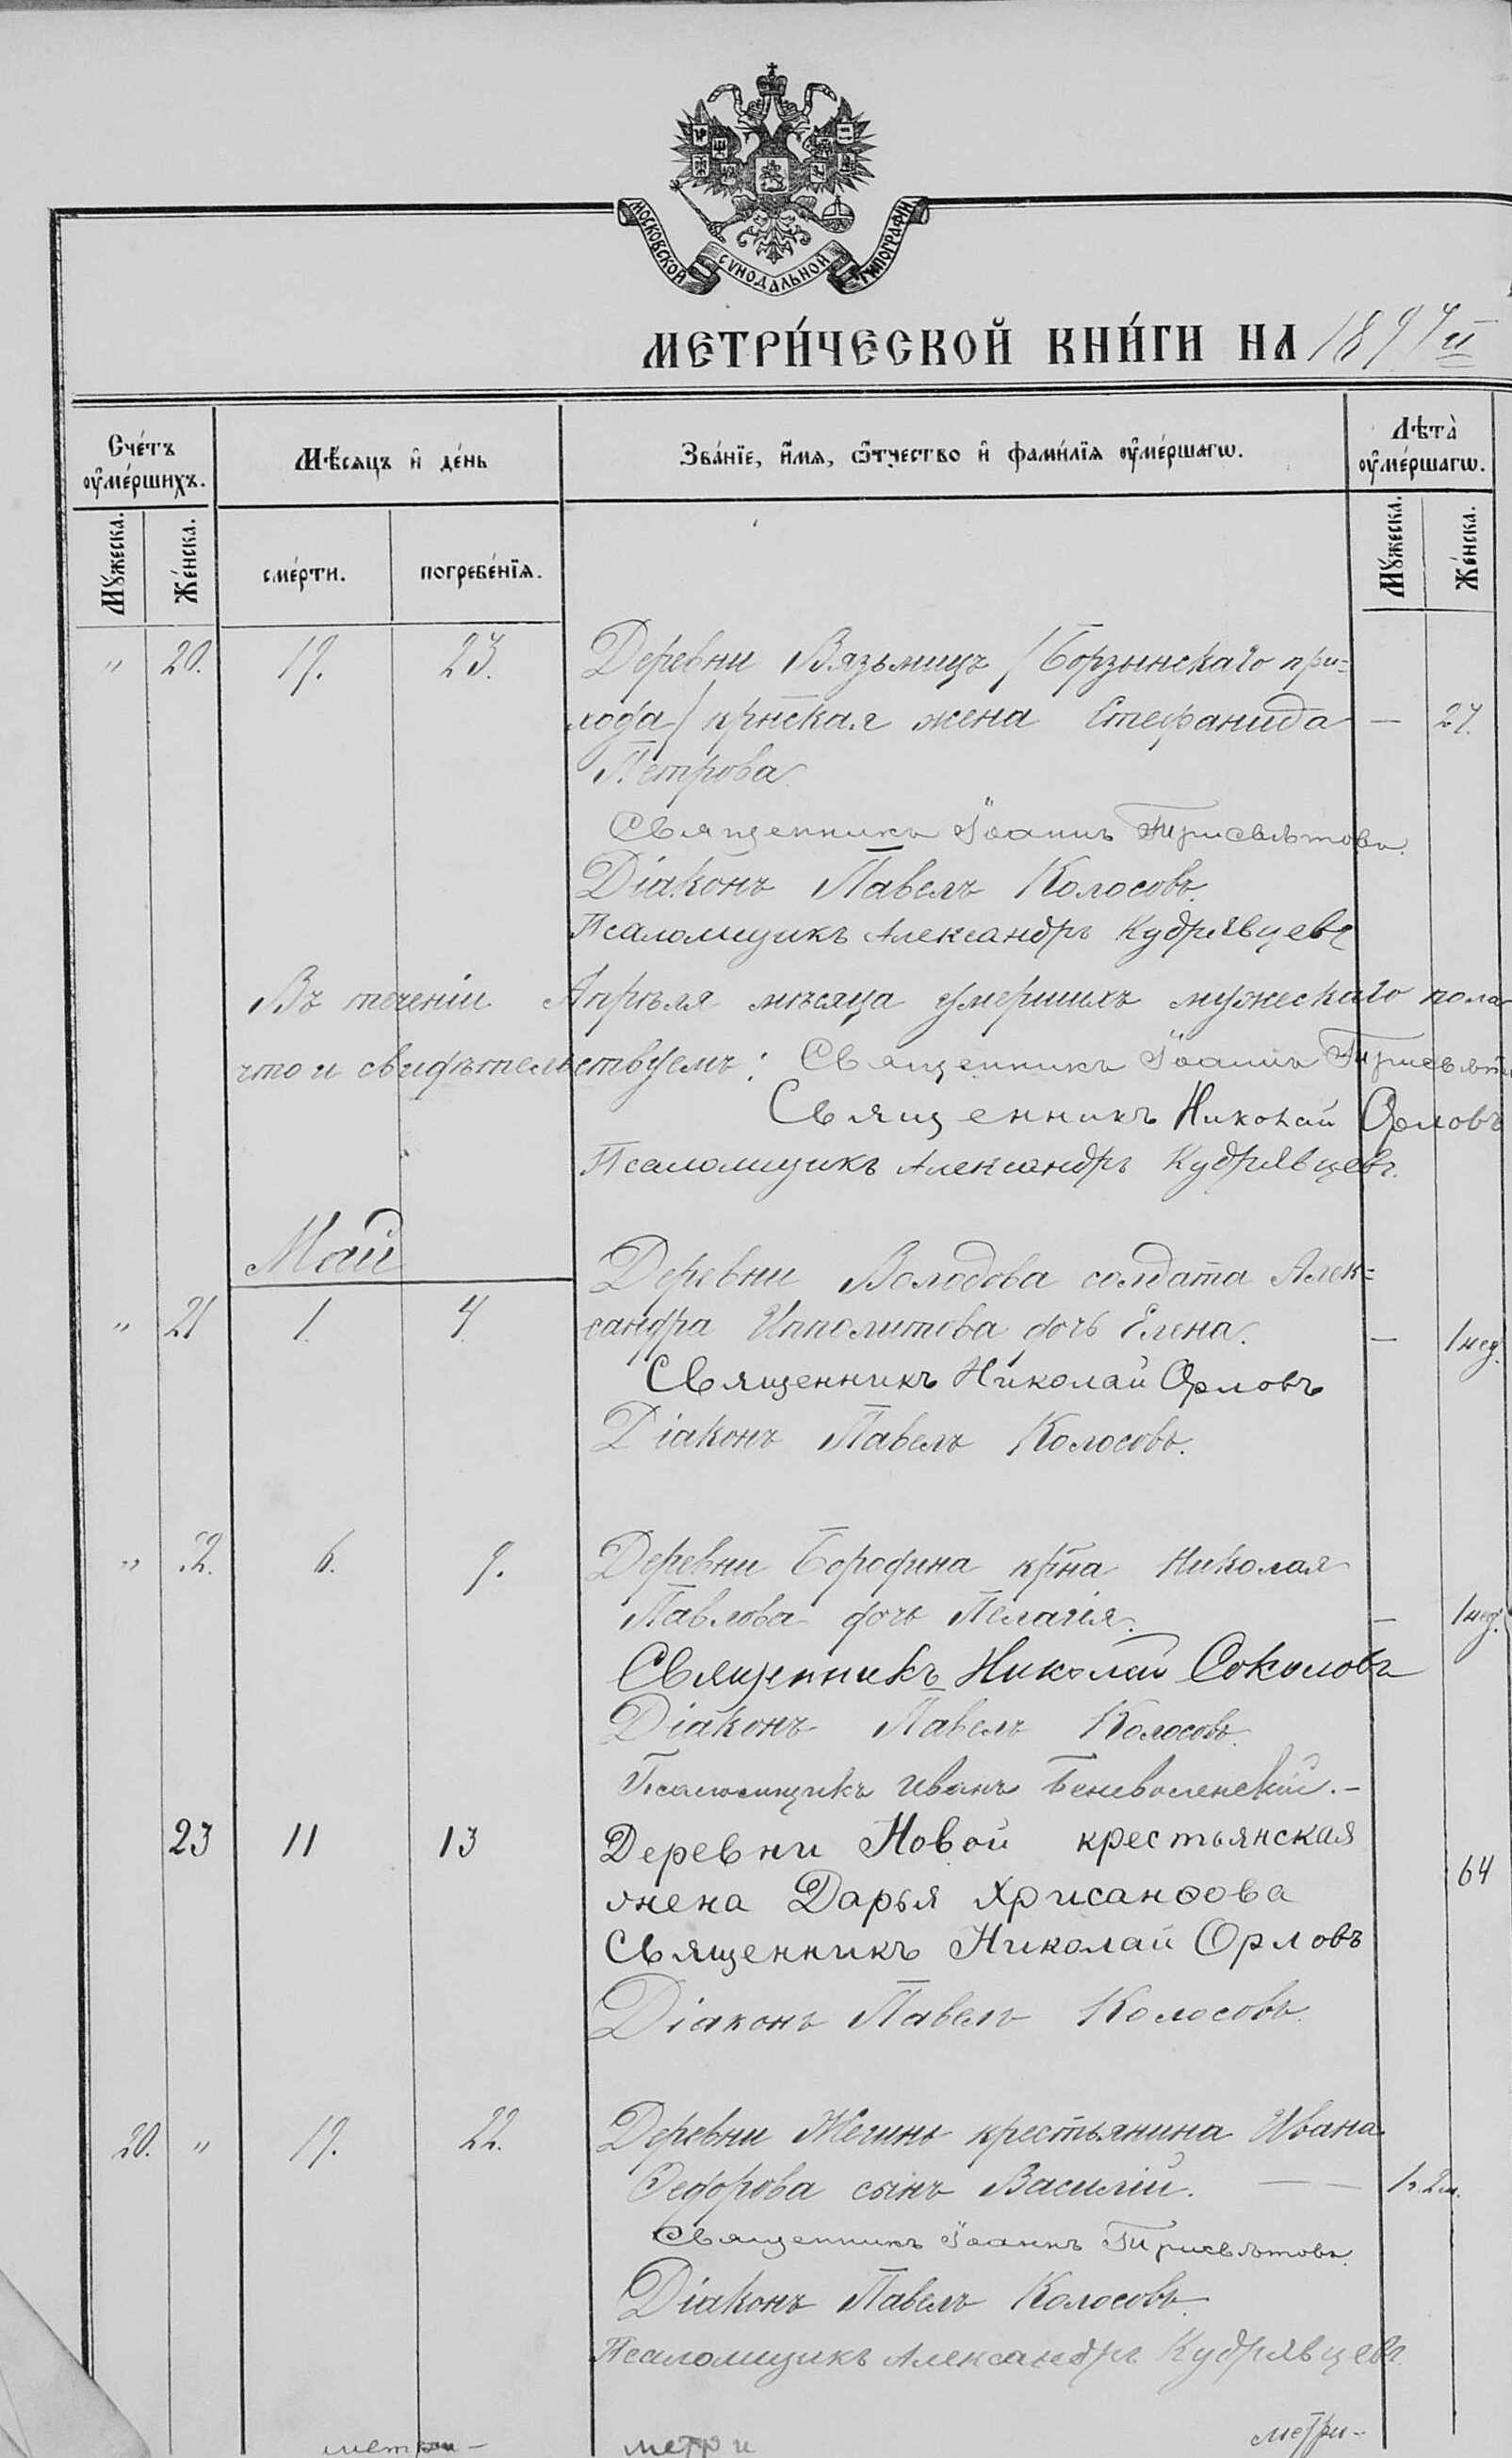 МОСКОВСКОЙ СУНОДАЛЬНОЙ ТИПОГРАФІИ
МЕТРИ́ЧЕСКОЙ КНИ́ГИ НА 1897 й
Сче́тъ ᲂу҆ме́ршихъ.
Мѣ́сяцъ и҆ де́нь
Зва́нїе, и҆́мѧ, ѻ҆́тчество и҆ фамѝлїѧ ᲂу҆ме́ршагѡ.
Лѣта̀ ᲂу҆ме́ршагѡ.
Мꙋ́жеска. Же́нска. сме́рти. погребе́нїѧ. Мꙋ́жеска. Же́нска.
" 20. 19. 23. Деревни Вязьмицъ (Борзынскаго при=
хода) крнская жена Стефанида — 27.
Петрова
Священникъ Іоаннъ Трисвѣтовъ.
Діаконъ Павелъ Колосовъ.
Псаломщикъ Александръ Кудрявцевъ
Въ теченіи Апрѣля мѣсяца умершихъ мужескаго пола
что и свидѣтельствуемъ: Священникъ Іоаннъ
Священникъ Николай Орловъ
Псаломщикъ Александръ Кудрявцевъ.
Май
Деревни Володова солдата Алек=
" 21 1. 4. сандра Ипполитова дочь Елена. — 1 нед.
Священникъ Николай Орловъ
Діаконъ Павелъ Колосовъ.
" 22. 6. 9. Деревни Бородина крна Николая
Павлова дочь Пелагія. — 1 нед.
Священникъ Николай Соколовъ
Діаконъ Павелъ Колосовъ.
Псаломщикъ Иванъ Беневоленскій. –
23 11 13 Деревни Новой крестьянская
жена Дарья Хрисанѳова 64
Священникъ Николай Орловъ
Діаконъ Павелъ Колосовъ.
20. " 19. 22. Деревни Жегинь крестьянина Ивана
Ѳедорова сынъ Василій. — 1 г. 2 м.
Священникъ Іоаннъ Трисвѣтовъ.
Діаконъ Павелъ Колосовъ.
Псаломщикъ Александръ Кудрявцевъ.
метри – метри метри –